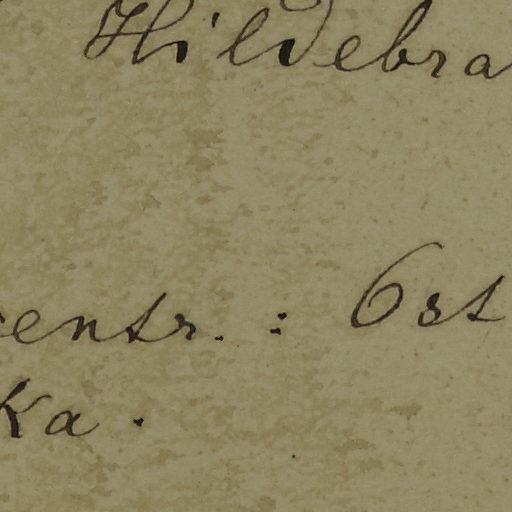 Hildebra
centr. : Ost
Ka.